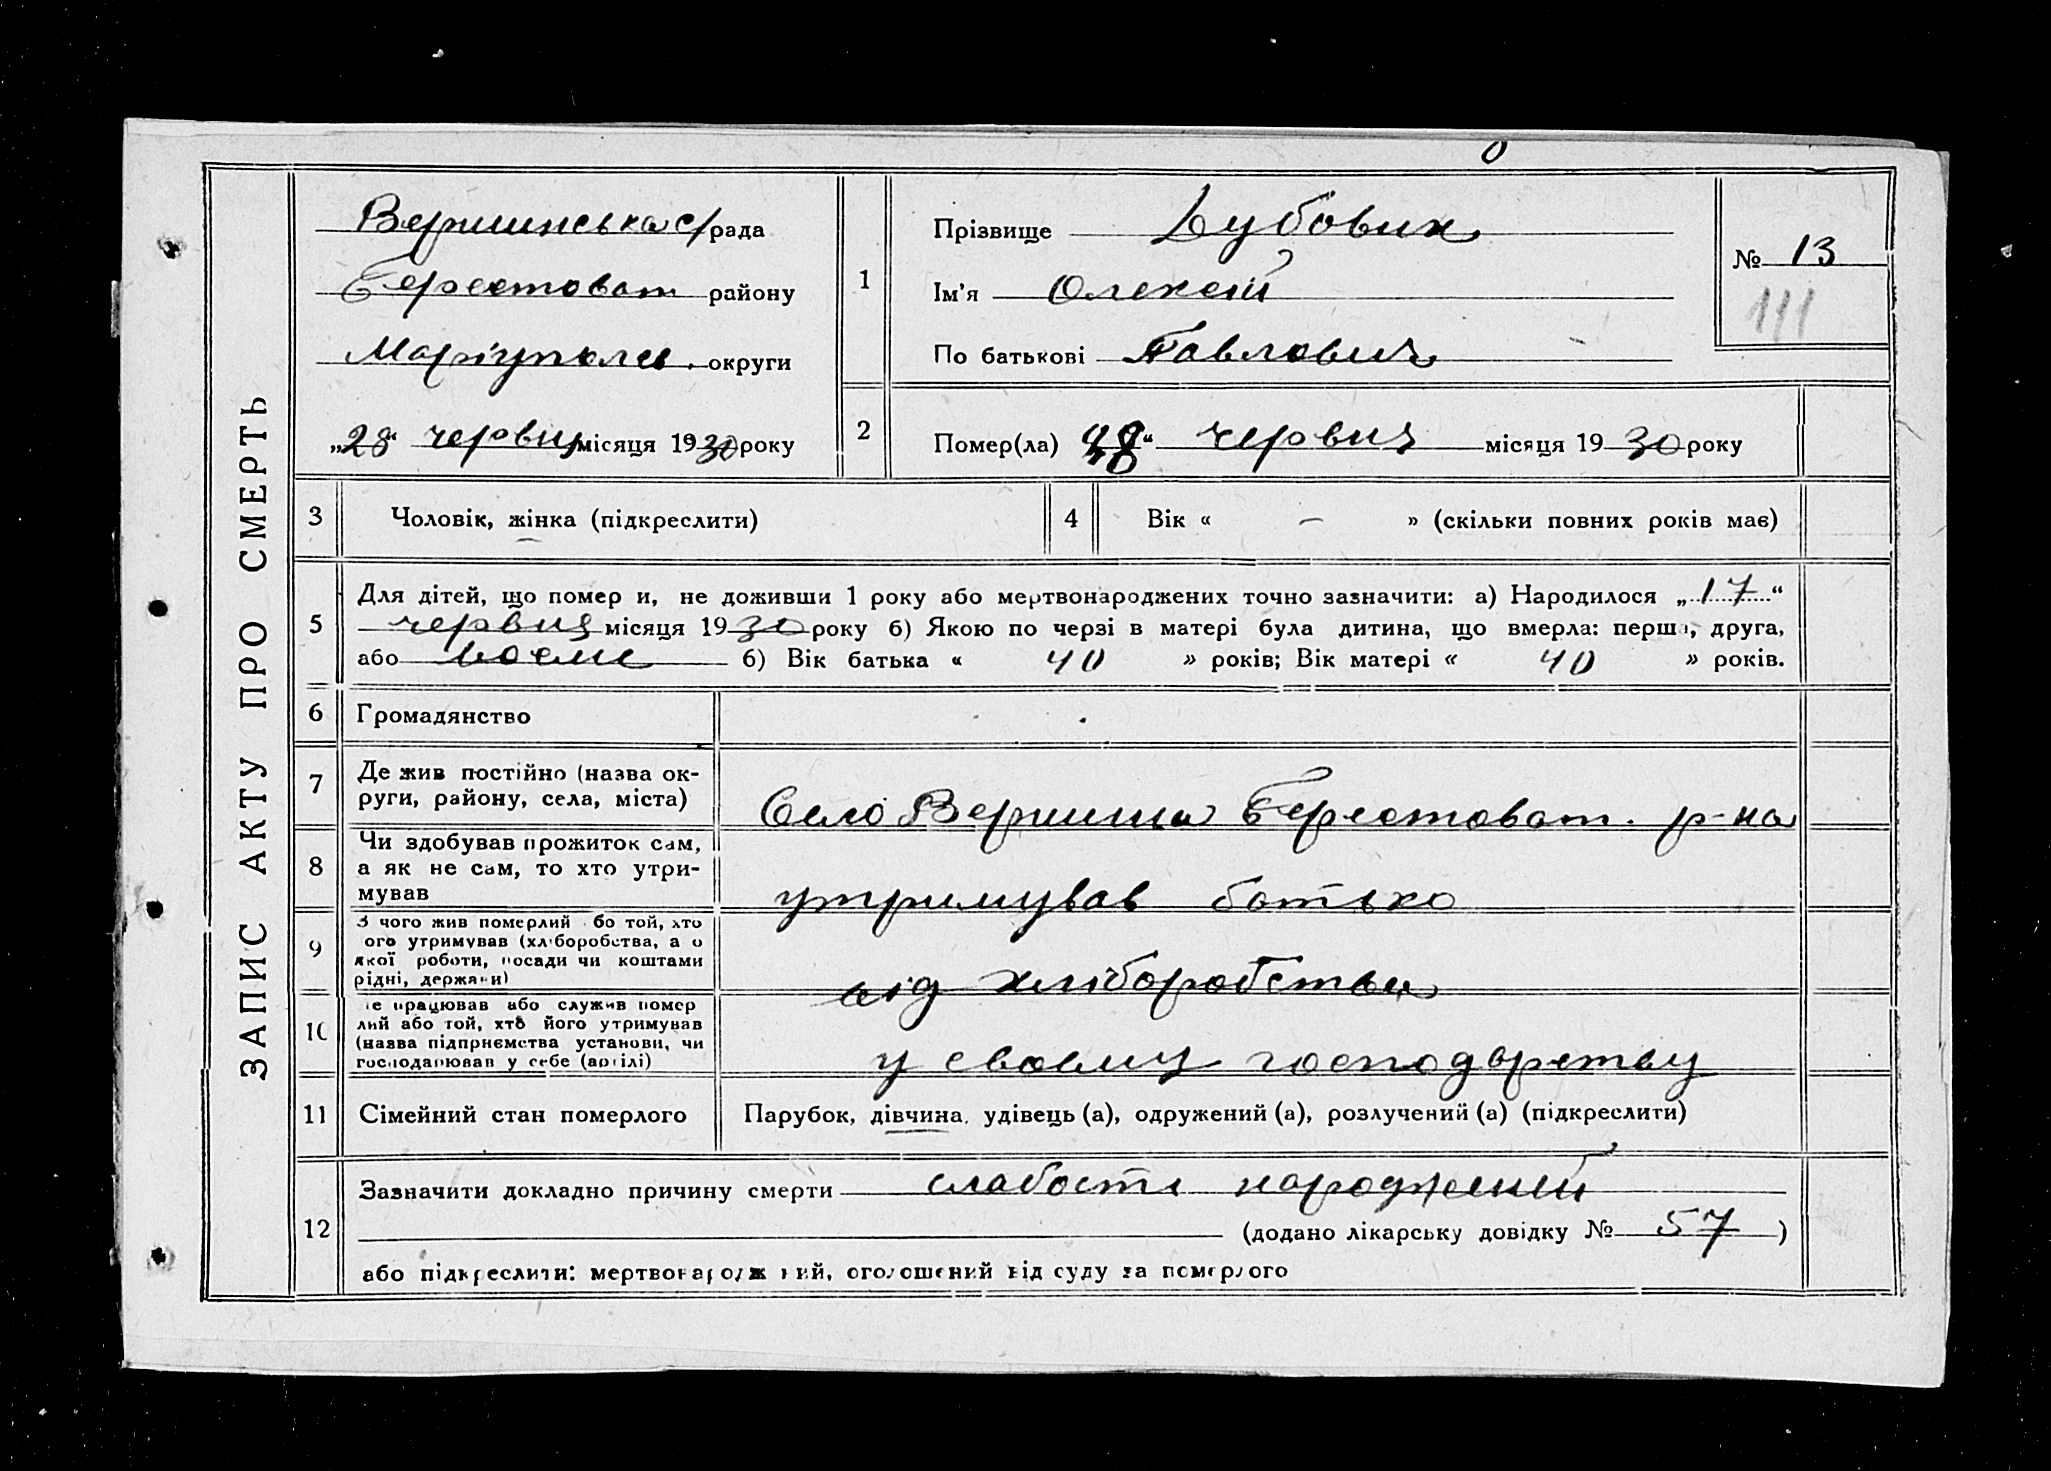 ЗАПИС АКТУ ПРО СМЕРТЬ
Вершинська с/рада
Берестоват. району
Маріупол. округи
„28“ червця місяця 1930 року
1
Прізвище Дубовик
Ім'я Олексій
По батькові Павлович
№ 13
111
2
Помер(ла) 28“ червця місяця 1930 року
3 Чоловік, жінка (підкреслити)
4 Вік « — » (скільки повних років має)
5
Для дітей, що померли, не доживши 1 року або мертвонароджених точно зазначити: а) Народилося „17“
червця місяця 1930 року б) Якою по черзі в матері була дитина, що вмерла: перша, друга,
або восьме б) Вік батька « 40 » років; Вік матері « 40 » років.
6 Громадянство
7
Де жив постійно (назва ок-
руги, району, села, міста)
Село Вершина Берестоват. р-на
8
Чи здобував прожиток сам,
а як не сам, то хто утри-
мував
утримував батько
9
З чого жив померлий або той, хто
його утримував (хліборобства, а о
якої роботи, посади чи коштами
рідні, держави)
від хліборобства
10
Де працював або служив помер
лий або той, хто його утримував
(назва підприємства установи, чи
господарював у себе (артілі)
у своєму господарству
11 Сімейний стан померлого
Парубок, дівчина, удівець (а), одружений (а), розлучений (а) (підкреслити)
12
Зазначити докладно причину смерти слабости народжений
(додано лікарську довідку № 57)
або підкреслити: мертвонароджений, оголошений від суду за померлого